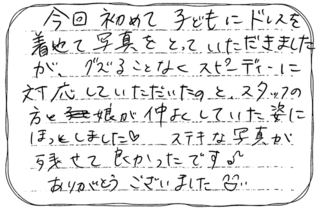 今回 初めて 子どもに ドレスを
着せて 写真を とって いただきました
が、グズることなく スピーディーに
対応していただいたのと、スタッフの
方と 娘が 仲よくしていた 姿に
ほっとしました♡ ステキな写真が
残せて 良かったです♪
ありがとう ございました